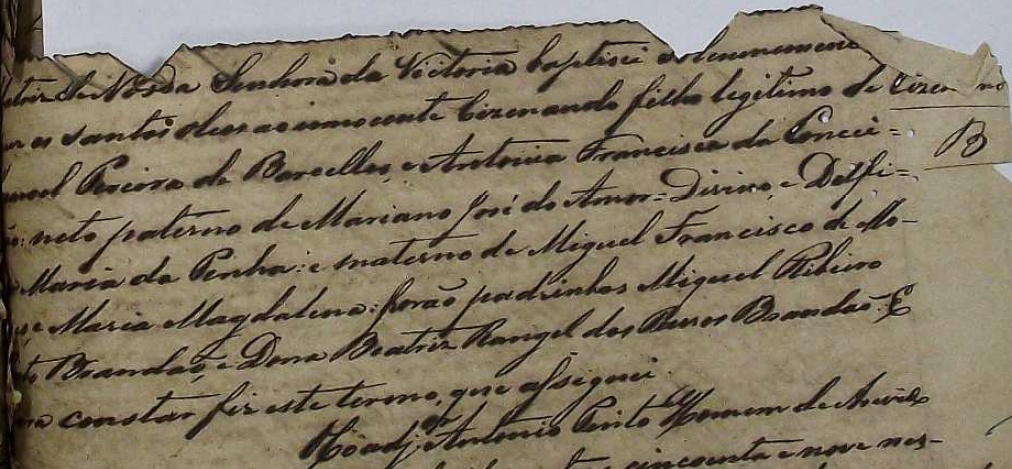 triz de Nossa Senhora da Victoria baptisei solemnemente
os santos oleos ao innocente Cizenando filho legitimo de
noel Pereira de Barcellos, e Antonia Francisca da Concei=
ão: neto paterno de Mariano José do Amor=Divino, e Delfi=
Maria da Penha: e materno de Miguel Francisco de Mo-
e Maria Magdalena: forão padrinhos Miguel Ribeiro
to Brandão, e Dona Beatriz Rangel dos Passos Brandão. E
ra constar fiz este termo, que assignei.
O Coadj.or Antonio Pinto Homem de Azevedo
cincoenta e nove nes-
Cizen no
B